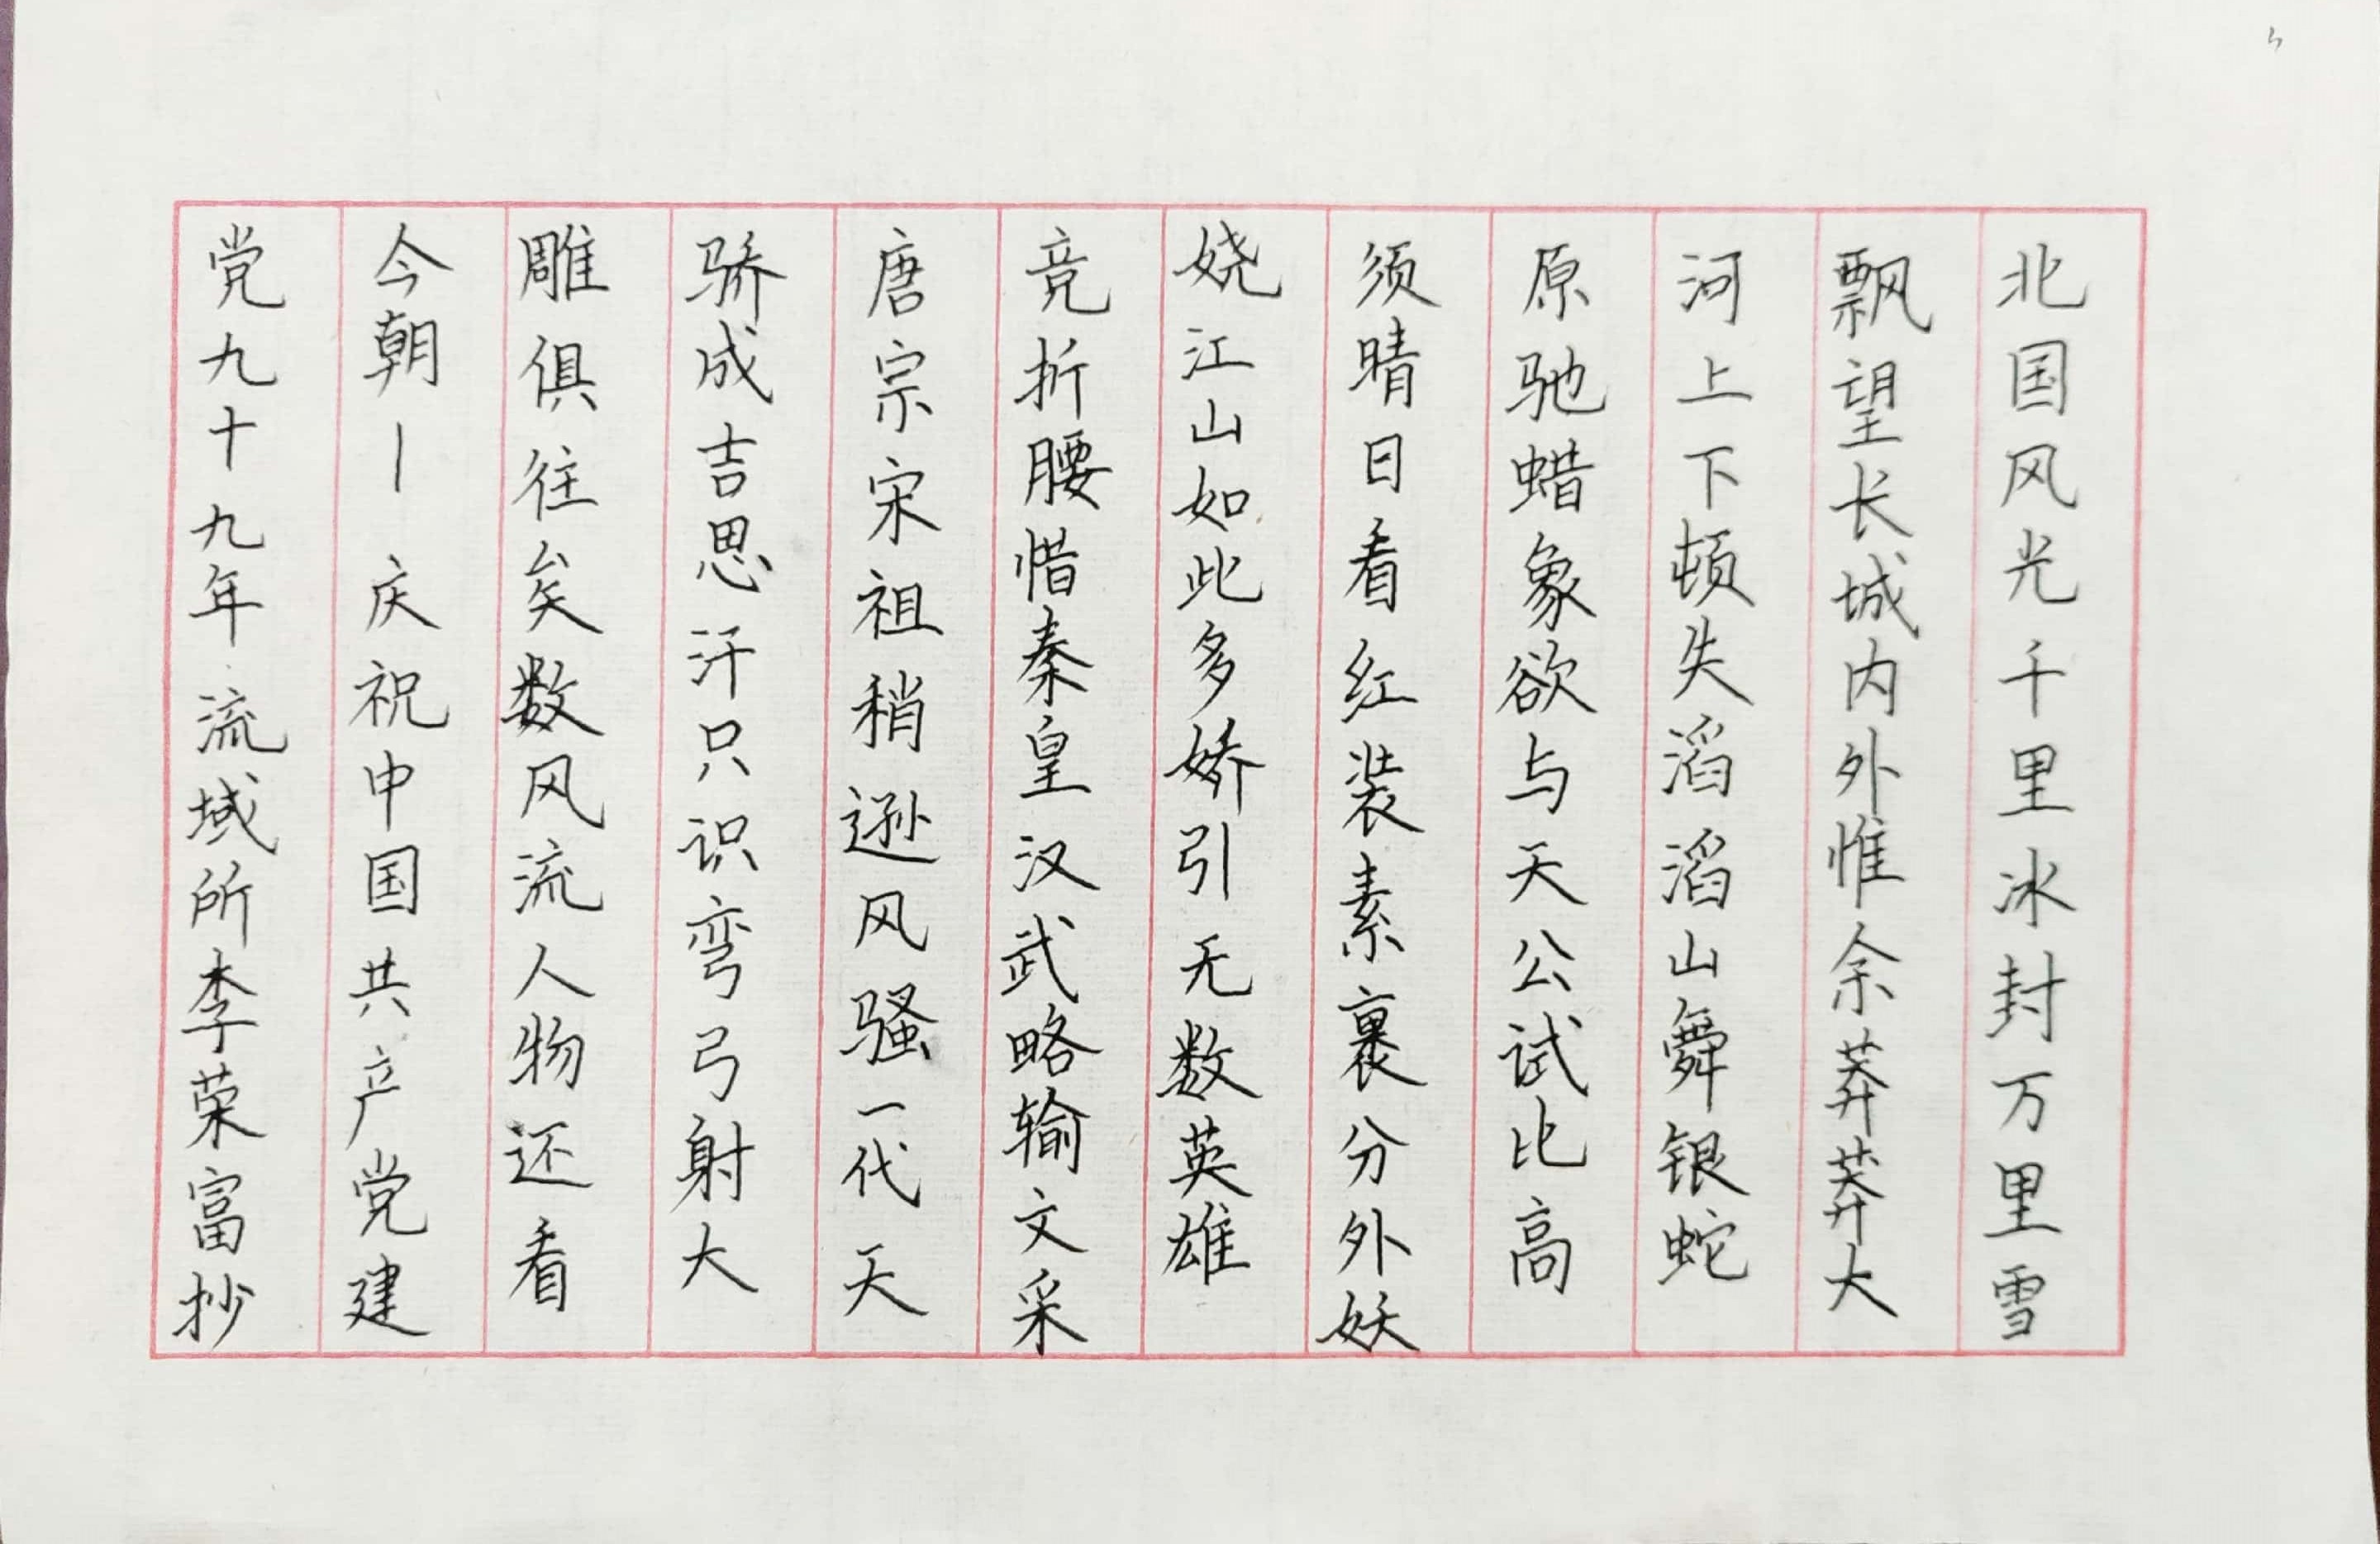 北国风光千里冰封万里雪
飘望长城内外惟余莽莽大
河上下顿失滔滔山舞银蛇
原驰蜡象欲与天公试比高
须晴日看红装素裹分外妖
娆江山如此多娇引无数英雄
竞折腰惜秦皇汉武略输文采
唐宗宋祖稍逊风骚一代天
骄成吉思汗只识弯弓射大
雕俱往矣数风流人物还看
今朝—庆祝中国共产党建
党九十九年流域所李荣富抄